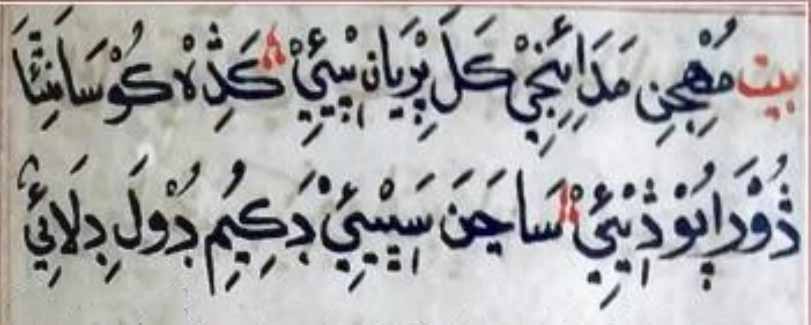 بيت مُهْجِنِ مَدَائِنجِيْ كَلَ پِرْيَانِ سِيِّئِيْ كَڎِهْ كُوْسَانِيَّا
ڎُوْرَاپُوْ ڎِيْئِيْ سَاجَنَ سَيْسِيِيْ دِكِيُمِ دُوْلَ دِلَائِيْ